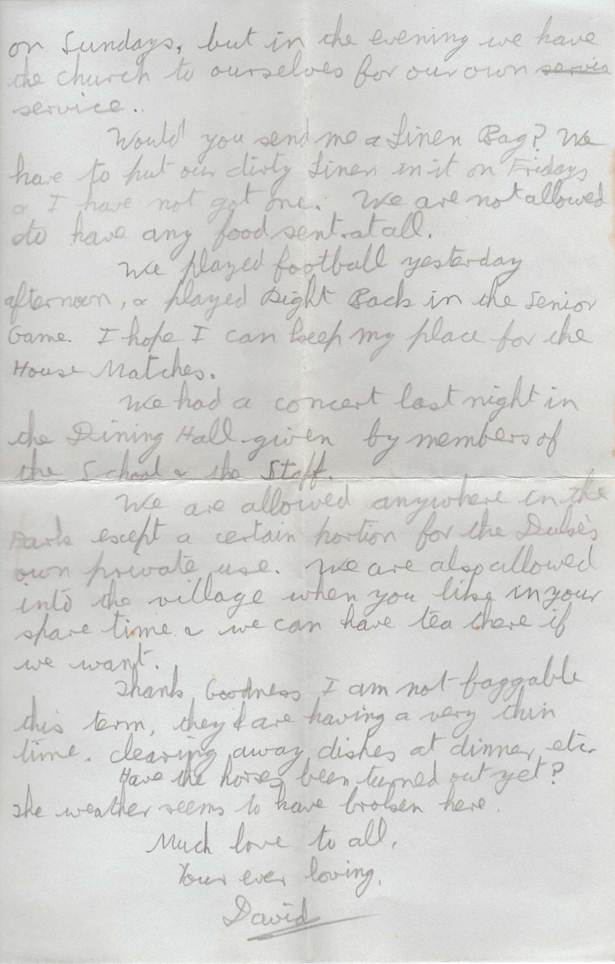 on Sundays, but in the evening we have
the church to ourselves for our own servic
service..
Would you send me a Linen Bag? We
have to put our dirty Linen in it on Fridays
& I have not got one. We are not allowed
to have any food sent at all.
We played football yesterday
afternoon, & played Right Back in the Senior
Game. I hope I can keep my place for the
House Matches.
We had a concert last night in
the Dining Hall given by members of
the School & the Staff.
We are allowed anywhere in the
Park except a certain portion for the Duke's
own private use. We are also allowed
into the village when you like in your
spare time & we can have tea there if
we want.
Thank Goodness I am not faggable
this term, they are having a very thin
time. clearing away dishes at dinner etc.
Have the horses been turned out yet?
The weather seems to have broken here.
Much love to all,
Your ever loving,
David